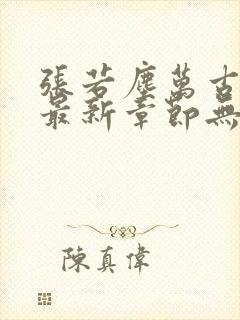 張若塵萬古
最新章節無
陳真偉